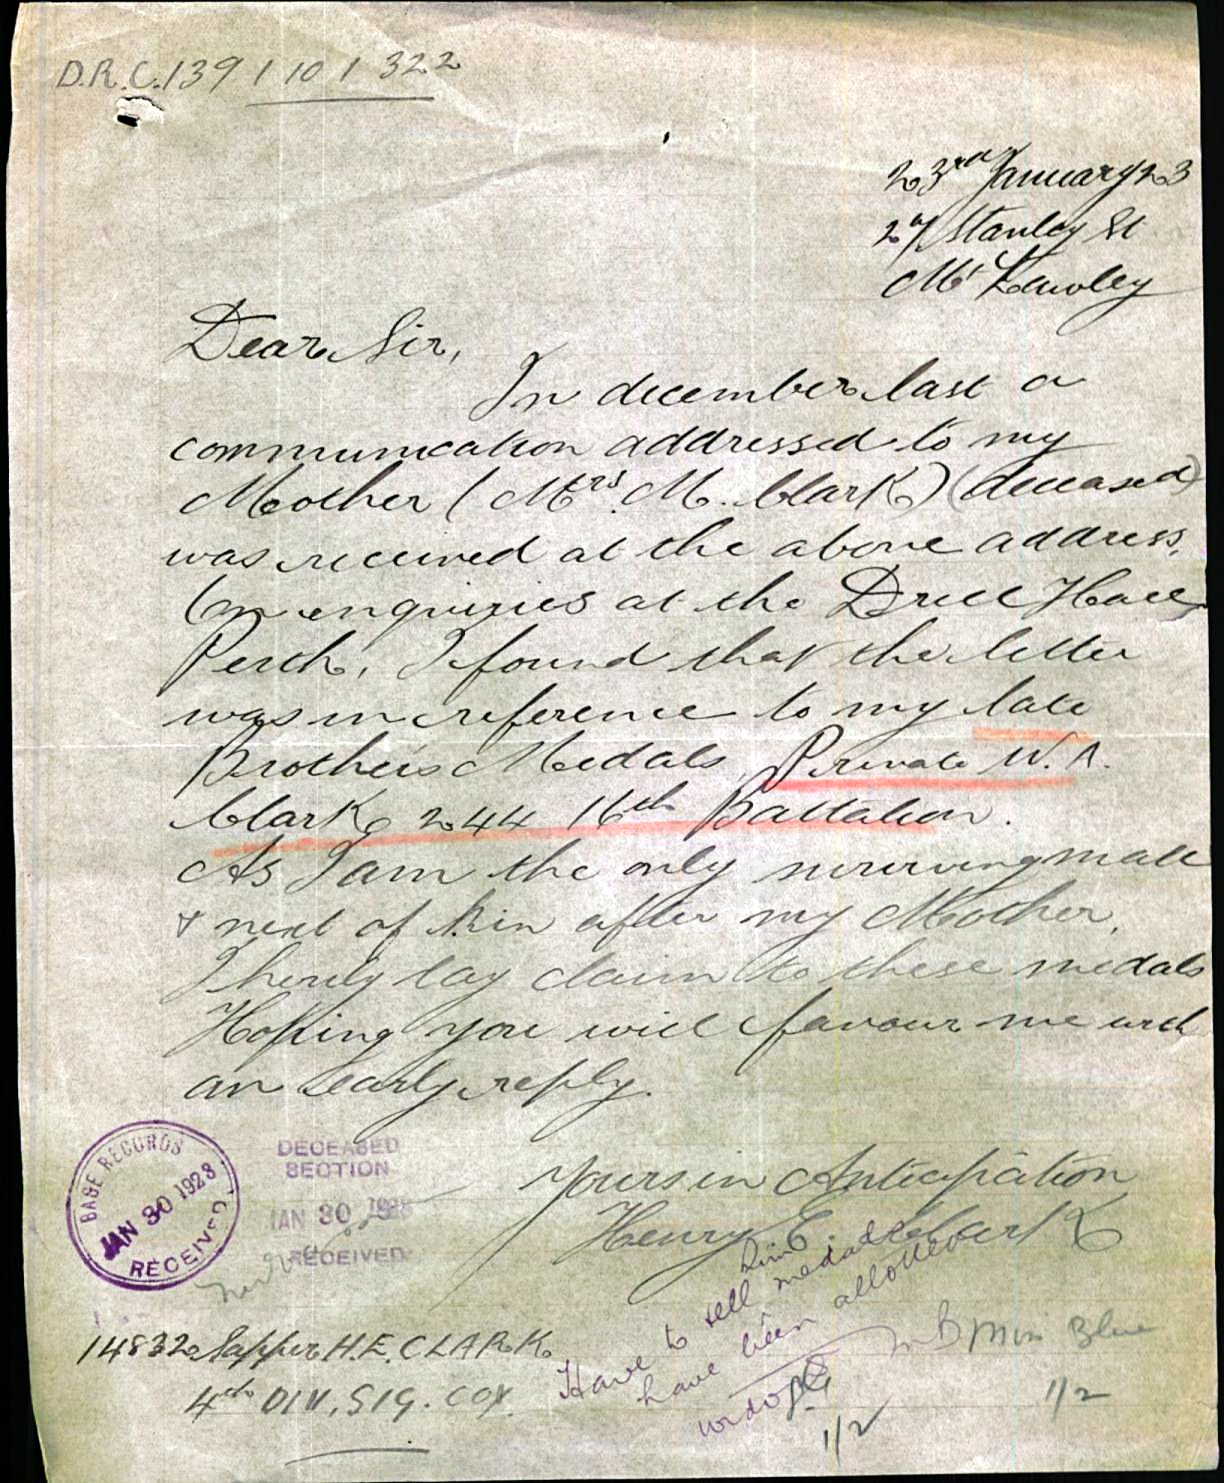 D.R.C.139 1 10 1 322
23rd January 23
27 Stanley St
Mt Hawley
Dear Sir,
In december last a
communication addressed to my
Mother (Mrs. M. Clark) (deceased)
was received at the above address.
On enquiries at the Drill Hall
Perth, I found that the letter
was in reference to my late
Brother's Medals, Private W. A.
Clark 244 16th Battalion.
As I am the only surviving male
& next of kin after my Mother,
I hereby lay claim to these medals
Hoping you will favour me with
an early reply.
Yours in Anticipation
Henry E. Clark
BASE RECORDS
JAN 30 1923
RECEIVED
DECEASED
SECTION
JAN 30 1923
RECEIVED
14832 Sapper H.E. CLARK
4th DIV. SIG. COY.
Have to sell medals
have been allotted
1/2
Miss Blue
1/2